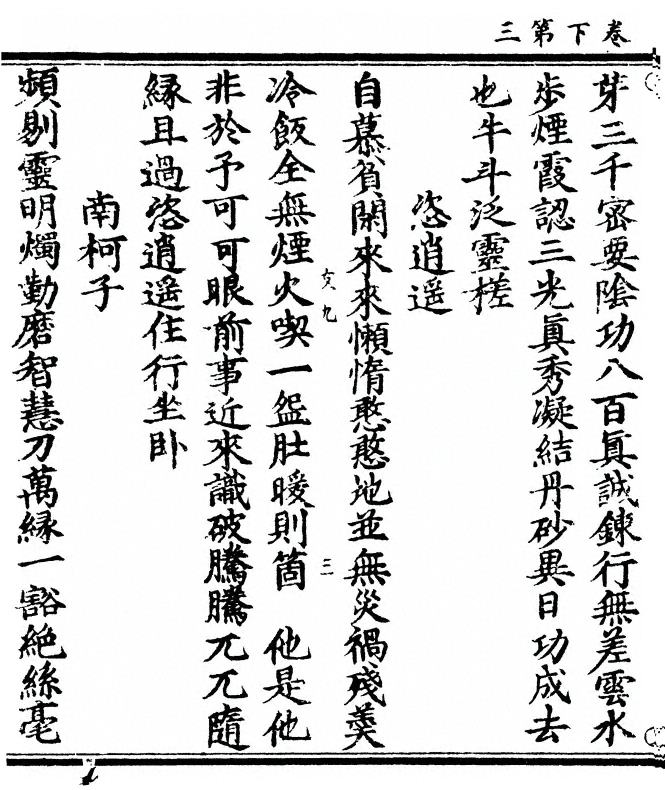 卷下第三
芽三千密要陰功八百真誠鍊行無差雲水
步煙霞認三光真秀凝結丹砂異日功成去
也牛斗泛靈槎
恣逍遥
自慕貧閑來來懶惰憨憨地並無災禍殘羹
冷飯全無煙火喫一盌肚暖則箇　他是他
攵九
三
非於予可可眼前事近來識破騰騰兀兀隨
緣且過恣逍遥住行坐卧
南柯子
頻剔靈明燭勤磨智慧刀萬緣一豁絶絲毫